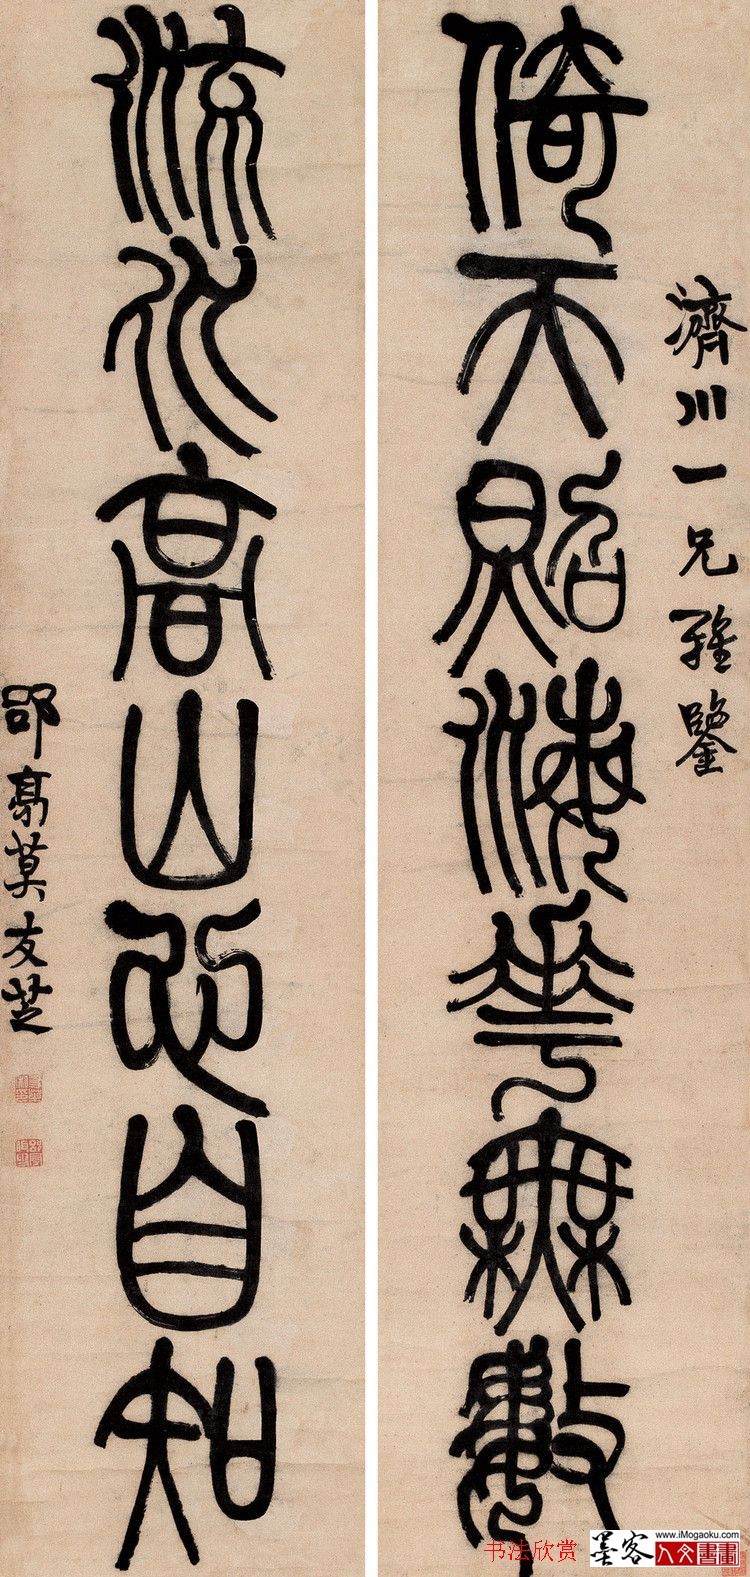 濟川一兄雅鑒
倚天照海花無數
流水高山心自知
郘亭莫友芝
书法欣赏
墨客
www.iMogaoku.com
人文書畫